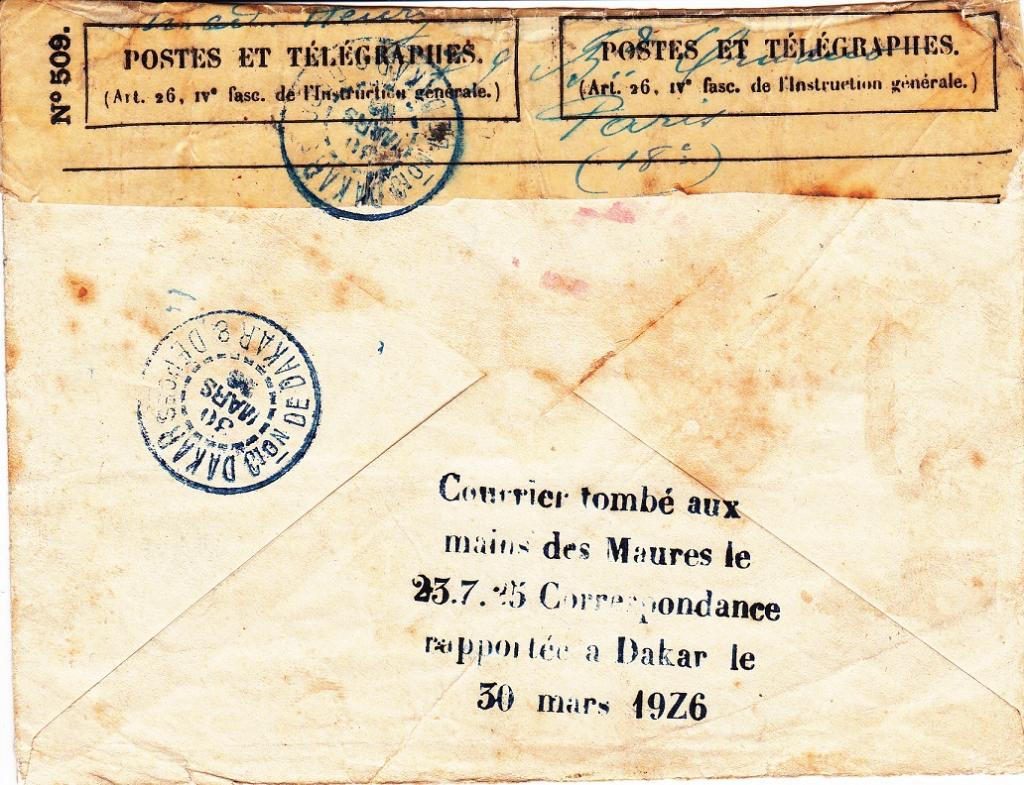 Nº 509.
POSTES ET TÉLÉGRAPHES.
(Art. 26, IVᵉ fasc. de l'Instruction générale.)
POSTES ET TÉLÉGRAPHES.
(Art. 26, IVᵉ fasc. de l'Instruction générale.)
Paris
(18ᵉ)
DAKAR
30
MARS
DAKAR & DEPCES
30
MARS
26
DAKAR
ON DE DAKAR
Courrier tombé aux
mains des Maures le
23.7.25 Correspondance
rapportée a Dakar le
30 mars 19Z6